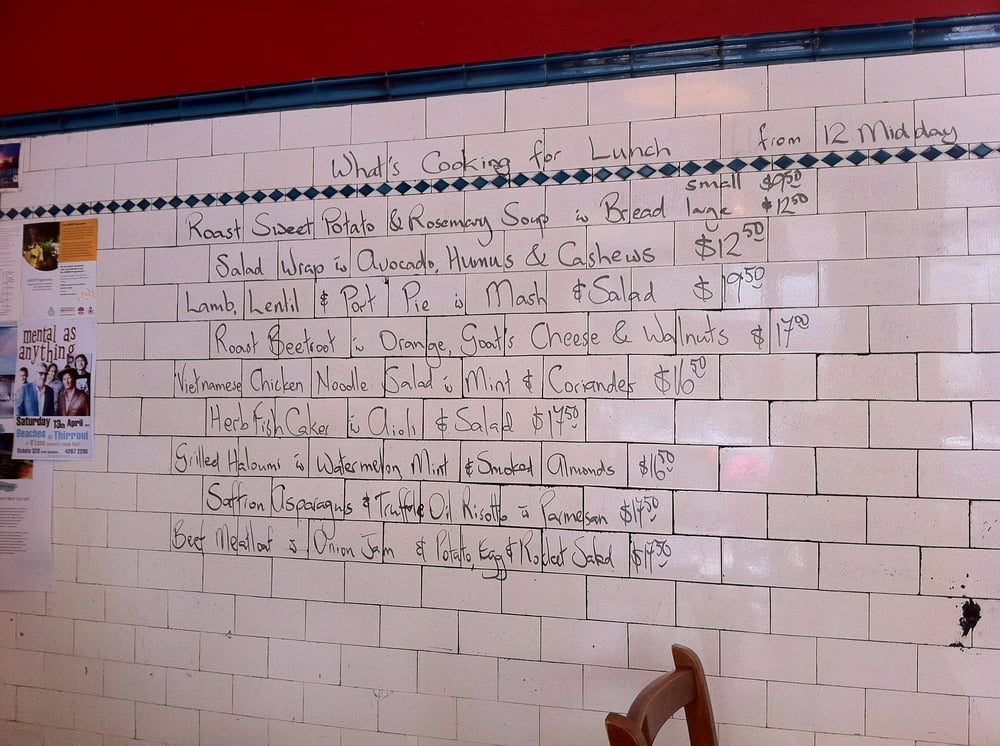 What's Cooking for Lunch from 12 Midday
small $9.50
Roast Sweet Potato & Rosemary Soup w Bread large $12.50
Salad Wrap w Avocado, Humus & Cashews $12.50
Lamb, Lentil & Port Pie w Mash & Salad $19.50
Roast Beetroot w Orange, Goat's Cheese & Walnuts $17.00
Vietnamese Chicken Noodle Salad w Mint & Coriander $16.50
Herb Fish Cakes w Aioli & Salad $17.50
Grilled Haloumi w Watermelon, Mint & Smoked Almonds $16.50
Saffron Asparagus & Truffle Oil Risotto w Parmesan $17.50
Beef Meatloaf w Onion Jam & Potato, Egg & Rocket Salad $17.50
mental as
anything
Saturday 13th April
Beaches Thirroul
Tickets $25 4267 2299